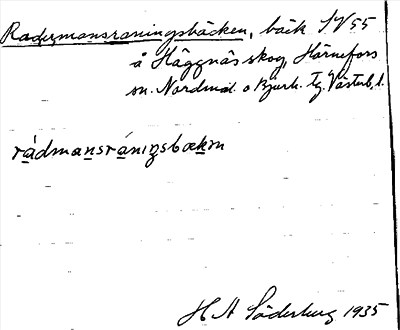 Radermansraningsbäcken, bäck SV55
å Häggnäs skog, Hörnefors
sn. Nordmal. o Bjurh. Tg. Västerb. l.
rádmansránıŋsbækın
H A Söderberg 1935